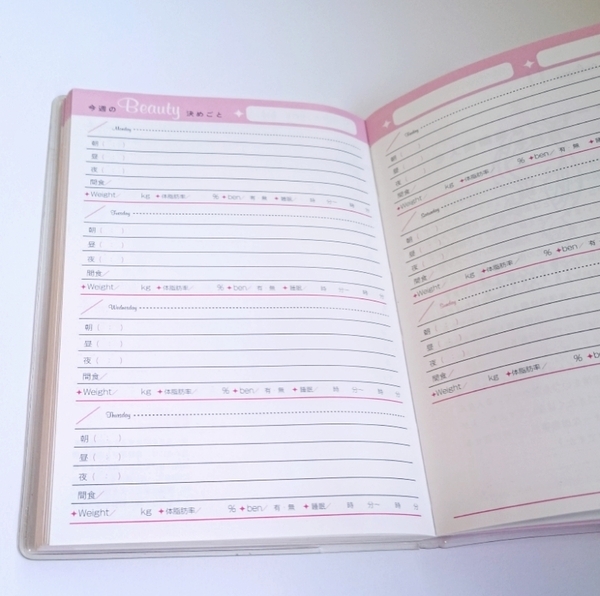 今週の Beauty 決めごと
Monday
朝（　）
昼（　）
夜（　）
間食／
Weight／ kg 体脂肪率／ % ben／有 無 睡眠／ 時 分ー 時 分
Tuesday
朝（　）
昼（　）
夜（　）
間食／
Weight／ kg 体脂肪率／ % ben／有 無 睡眠／ 時 分ー 時 分
Wednesday
朝（　）
昼（　）
夜（　）
間食／
Weight／ kg 体脂肪率／ % ben／有 無 睡眠／ 時 分ー 時 分
Thursday
朝（　）
昼（　）
夜（　）
間食／
Weight／ kg 体脂肪率／ % ben／有 無 睡眠／ 時 分ー 時 分
朝（　）
昼（　）
夜（　）
間食／
Weight／ kg 体脂肪率／ % ben／有 無
Saturday
朝（　）
昼（　）
夜（　）
間食／
Weight／ kg 体脂肪率／ % ben／有
Sunday
朝（　）
昼（　）
夜（　）
間食／
Weight／ kg 体脂肪率／ %